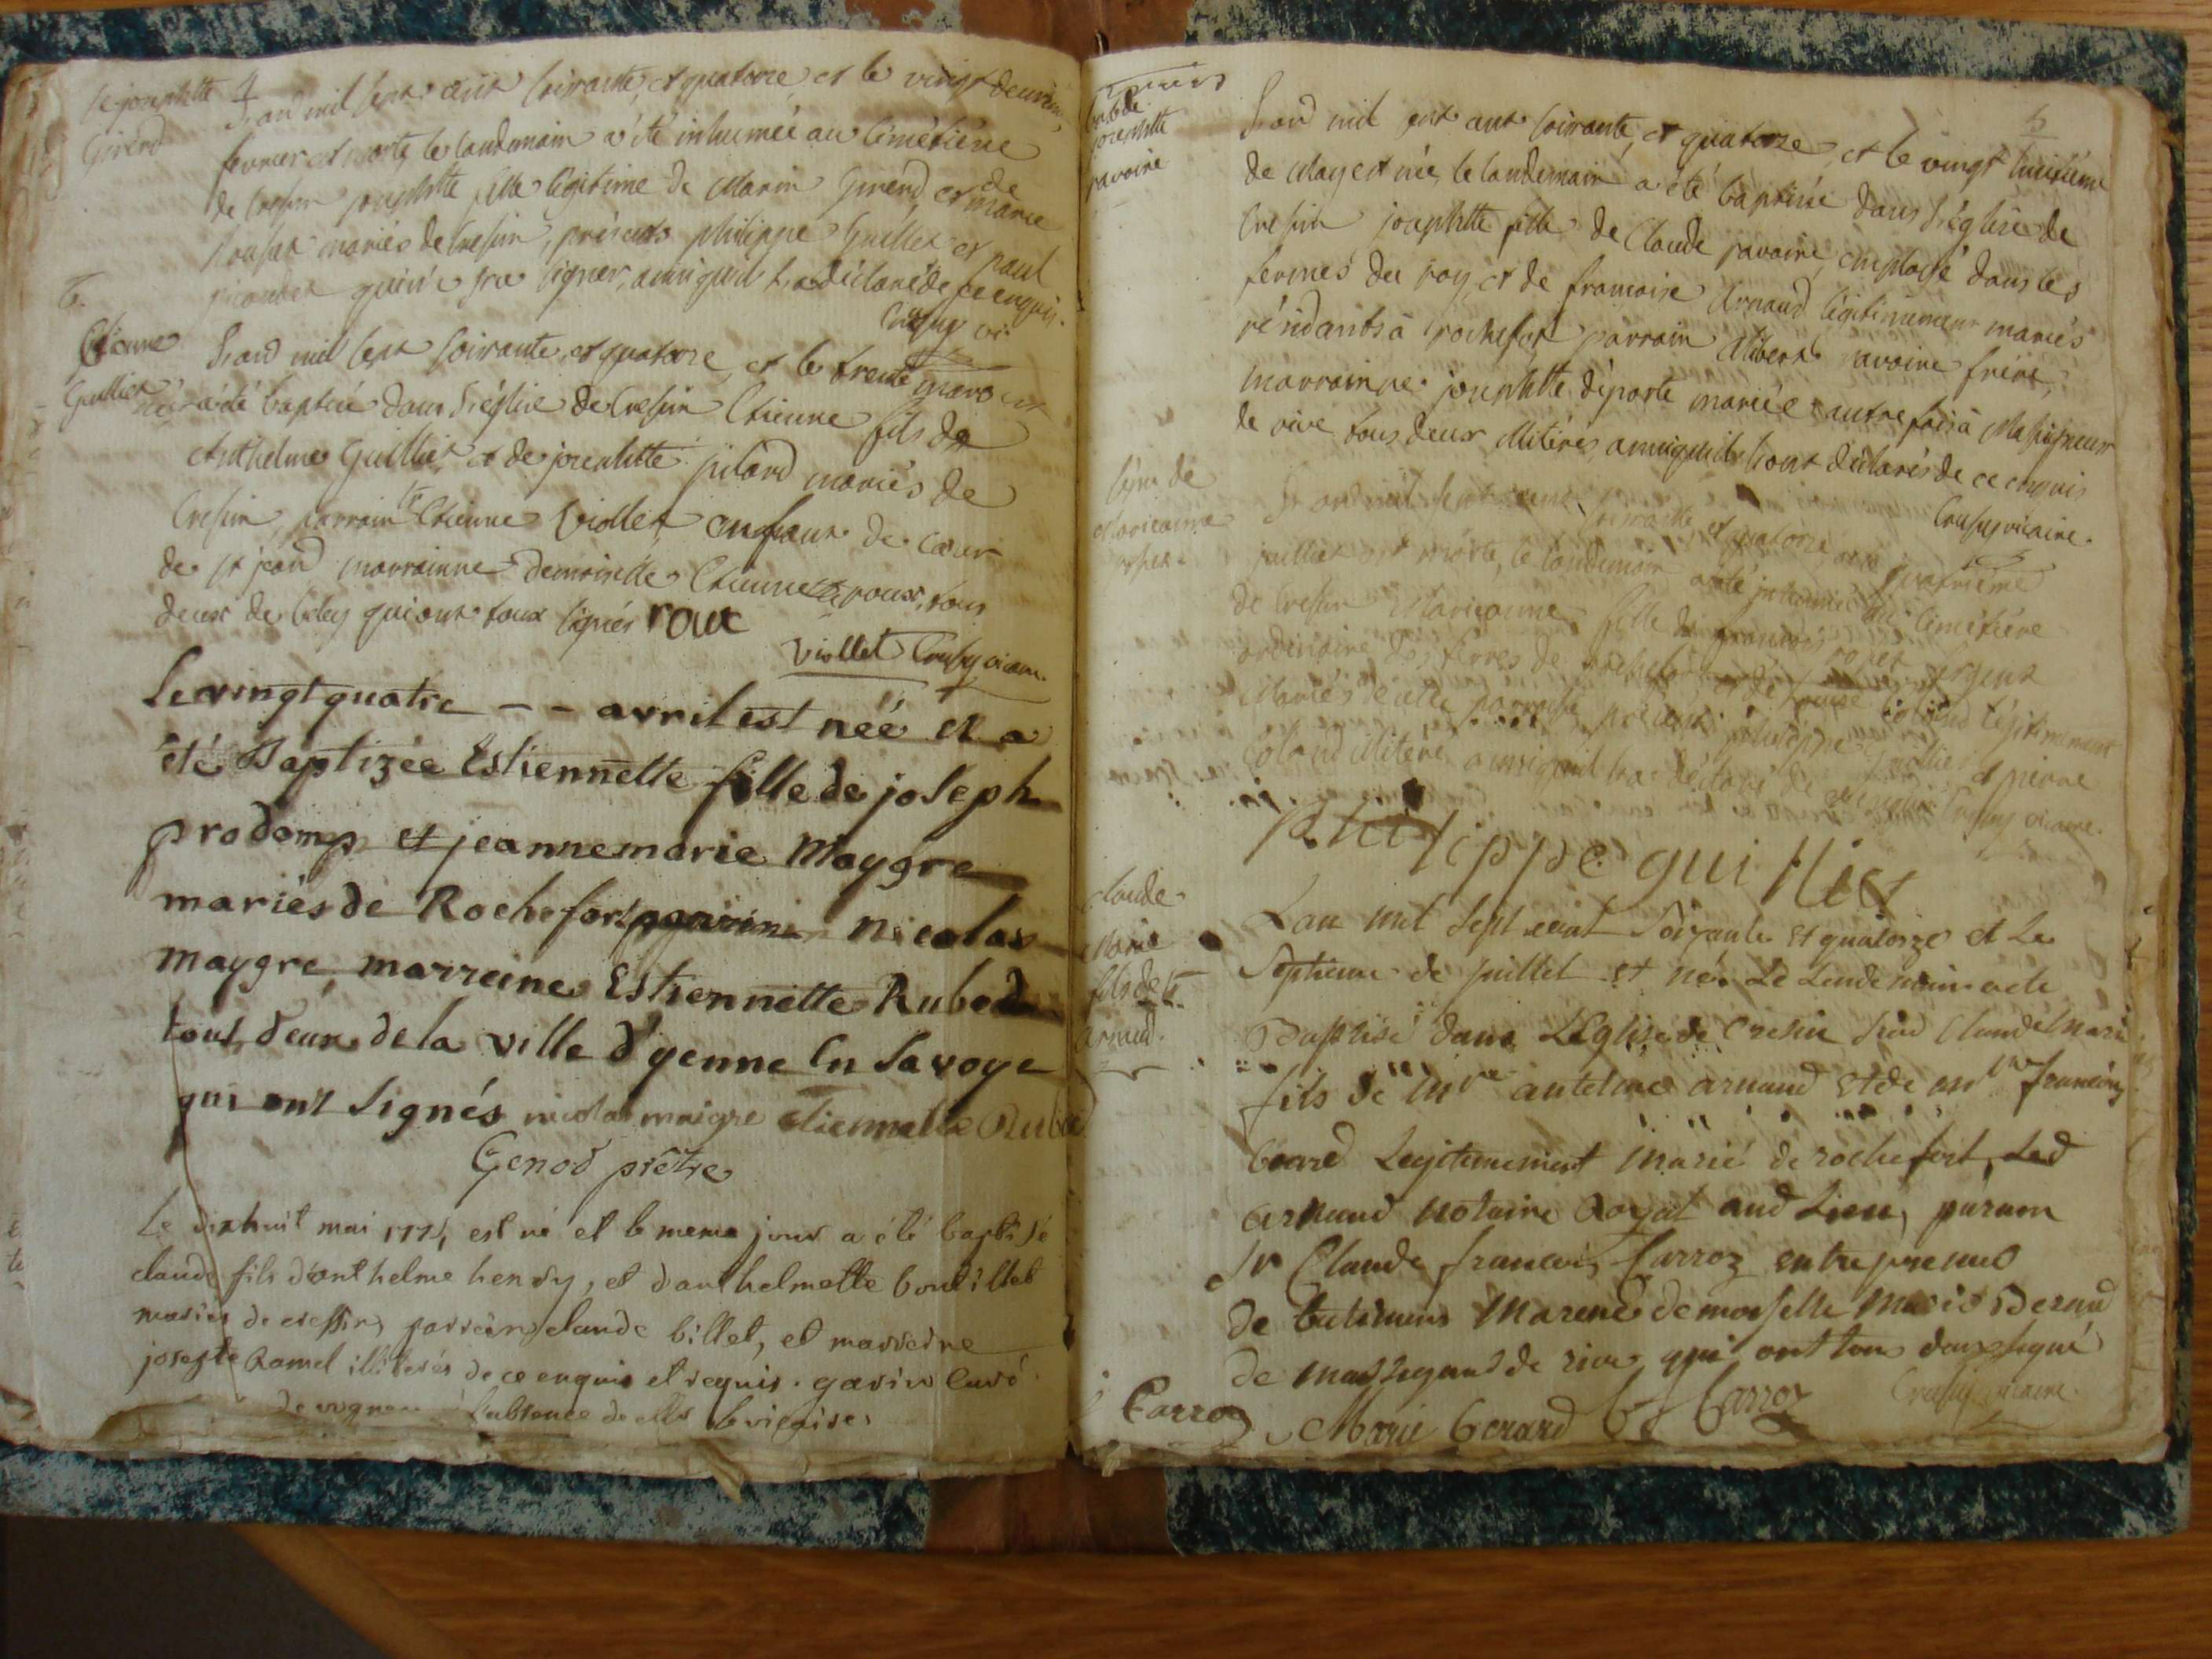 4
Se josephtte
Girérd
L'an mil sept cent soixante, et quatorze, et le vingt deuxième,
fevrier est morte, le landemain a été inhumée au Cimétiére
de Cresin josephtte fille légitime de Marin Girérd, et de marie
mariés de Cresin, présents philippe Guillet et paul
qui n'a scu signer, ainsi qu'il l'a déclaré de ce enquis.
Crussy vic
B.
Etienne
Guillet
L'an mil sept soixante, et quatorze, et le trente mars est
né, a été baptisé dans l'église de Cresin Etienne fils de
Anthelme Guilliet, et de josephtte pilard mariés de
Cresin, parrain Sr Etienne Viollet, enfant de cœur
de st jean marrainne demoiselle Etiennette roux, tous
deux de Beley qui ont tous signés roux
Viollet Crussy vicaire.
Le vingt quatre - - avril est néé et a
été Baptizée Estiennette fille de joseph
prodomp et jeanne marie Maygre
mariés de Rochefort parrin Nicolas
maygre, marreine Estiennette Rubod
tout deux de la ville d'yenne En Savoye
qui ont signés nicolas maigre Etiennette Rubod
Genod prêtre
Le dixhuit mai 1774, est né et le meme jour a été baptisé
claude fils d'anthelme hendy, et d'anthelmette boutillet
mariés de cressin, parrein claude billet, et marreine
josepte Ramel illiterés de ce enquis et requis. gavin Curé
de vognes l'absence de le vicaire
5
bap. de
josephtte
pavoine
L'an mil sept cent soixante, et quatorze, et le vingt huitiéme
de May est née, le landemain a été baptisée dans l'église de
Cresin josephtte fille de Claude pavoine, employé dans les
fermes du roy, et de francoise Arnaud légitimement mariés
résidants à rochefort parrain Alibert pavoine frére,
marrainne josephtte déporte mariée autrefois à Massigneux
de rive tous deux illitérés, ainsi qu'ils l'ont déclarés de ce enquis
Crussy vicaire.
sépu. de
Marieanne
L'an mil sept cent soixante, et quatorze, et le quatriéme
juillet est morte, le landemain a été inhumée au cimétiére
de Cresin Marieanne fille de francois sergent
ordinaire des terres de rochefort et de Louise Coland légitimement
Mariés de cette parroisse présents philippe Guillet et pierre
Coland illiteré ainsi qu'il l'a déclaré de ce enquis Crussy vicaire.
Philippe guilliet
claude
Marie
fils de Sr
Arnaud.
L'an mil sept cent Soixante et quatorze et Le
Septieme de juillet est né. Le Lendemain a ete
Baptisé dans L'Eglise de Cresin Sieur Claude Marie
fils de Mre antelme arnaud et de francoise
Legitimement Marié de rochefort, Led
arnaud notaire Royal aud Lieu, parain
Sr Claude francois Carroz entrepreneur
de batimens Marene demoiselle Marie Berard
de massignieu de rive qui ont tous deux signé
Carroz Marie Gerard Cf Carroz Crussy vicaire.